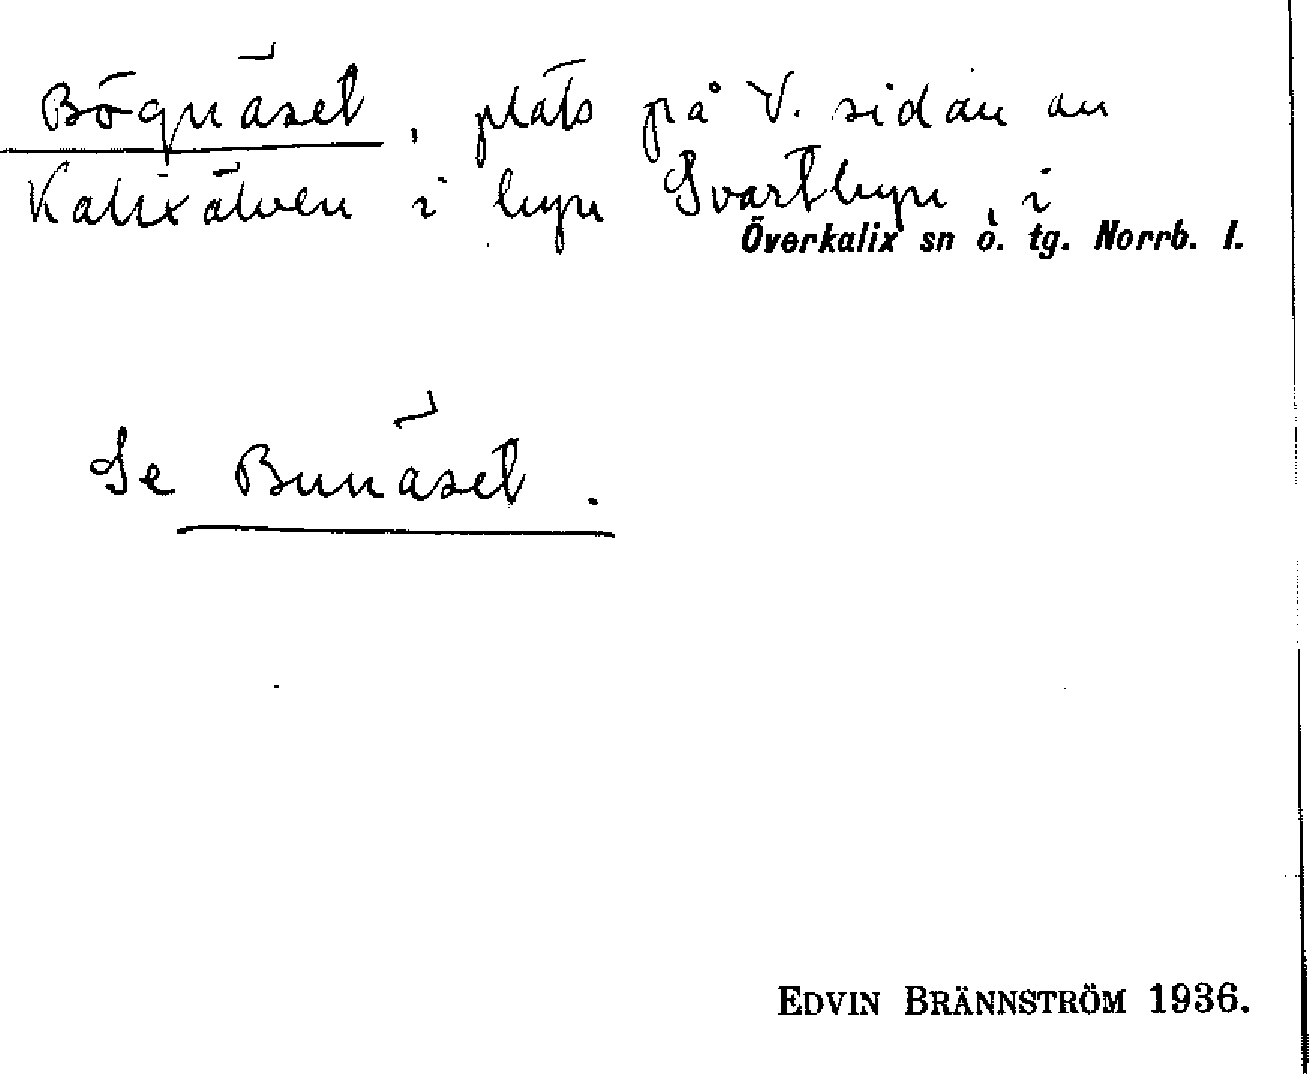 Bögnäset, plats på V. sidan av
Kalixälven i byn Svartbyn, i
Överkalix sn o. tg. Norrb. l.
Se Bunäset.
EDVIN BRÄNNSTRÖM 1936.